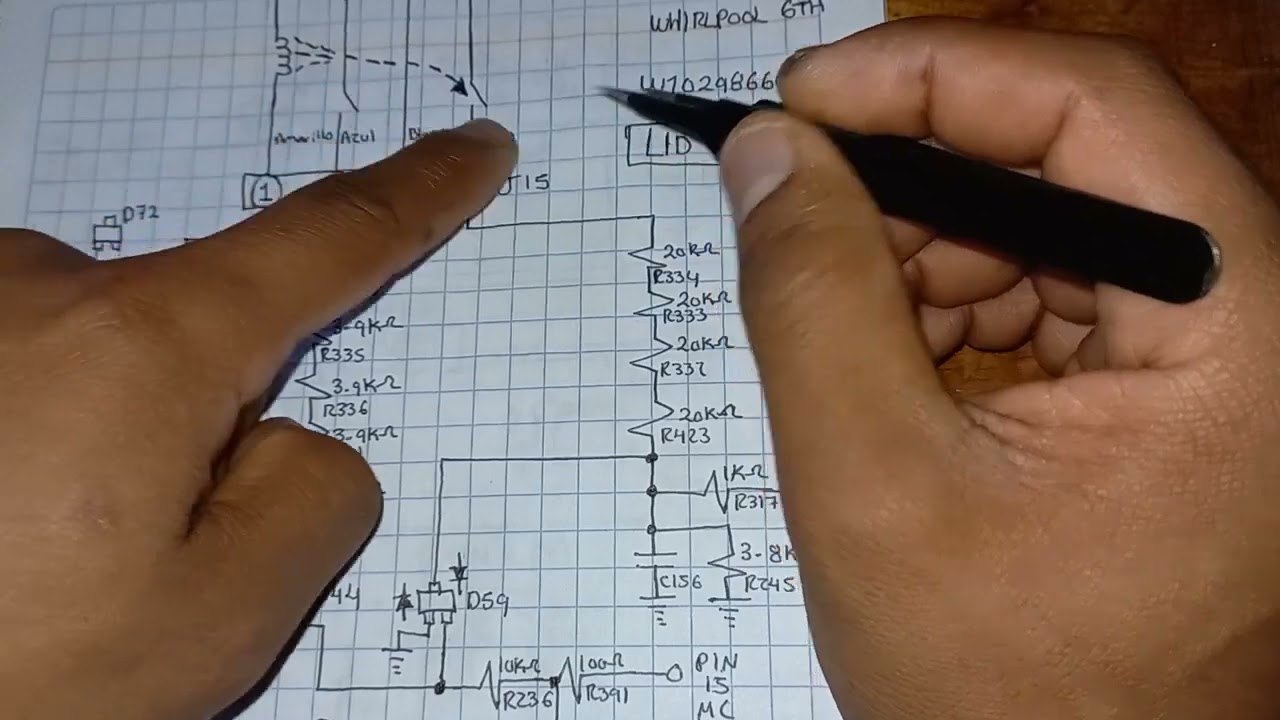 WHIRLPOOL 6TH
W1029866
Amarillo
Azul
LID
1
J15
D72
20KΩ
R334
20KΩ
R333
3-9KΩ
R335
20KΩ
R332
3-9KΩ
R336
20KΩ
R423
3-9KΩ
1KΩ
R317
3-8K
R245
C156
44
D59
10KΩ
R236
100Ω
R391
PIN
15
MC